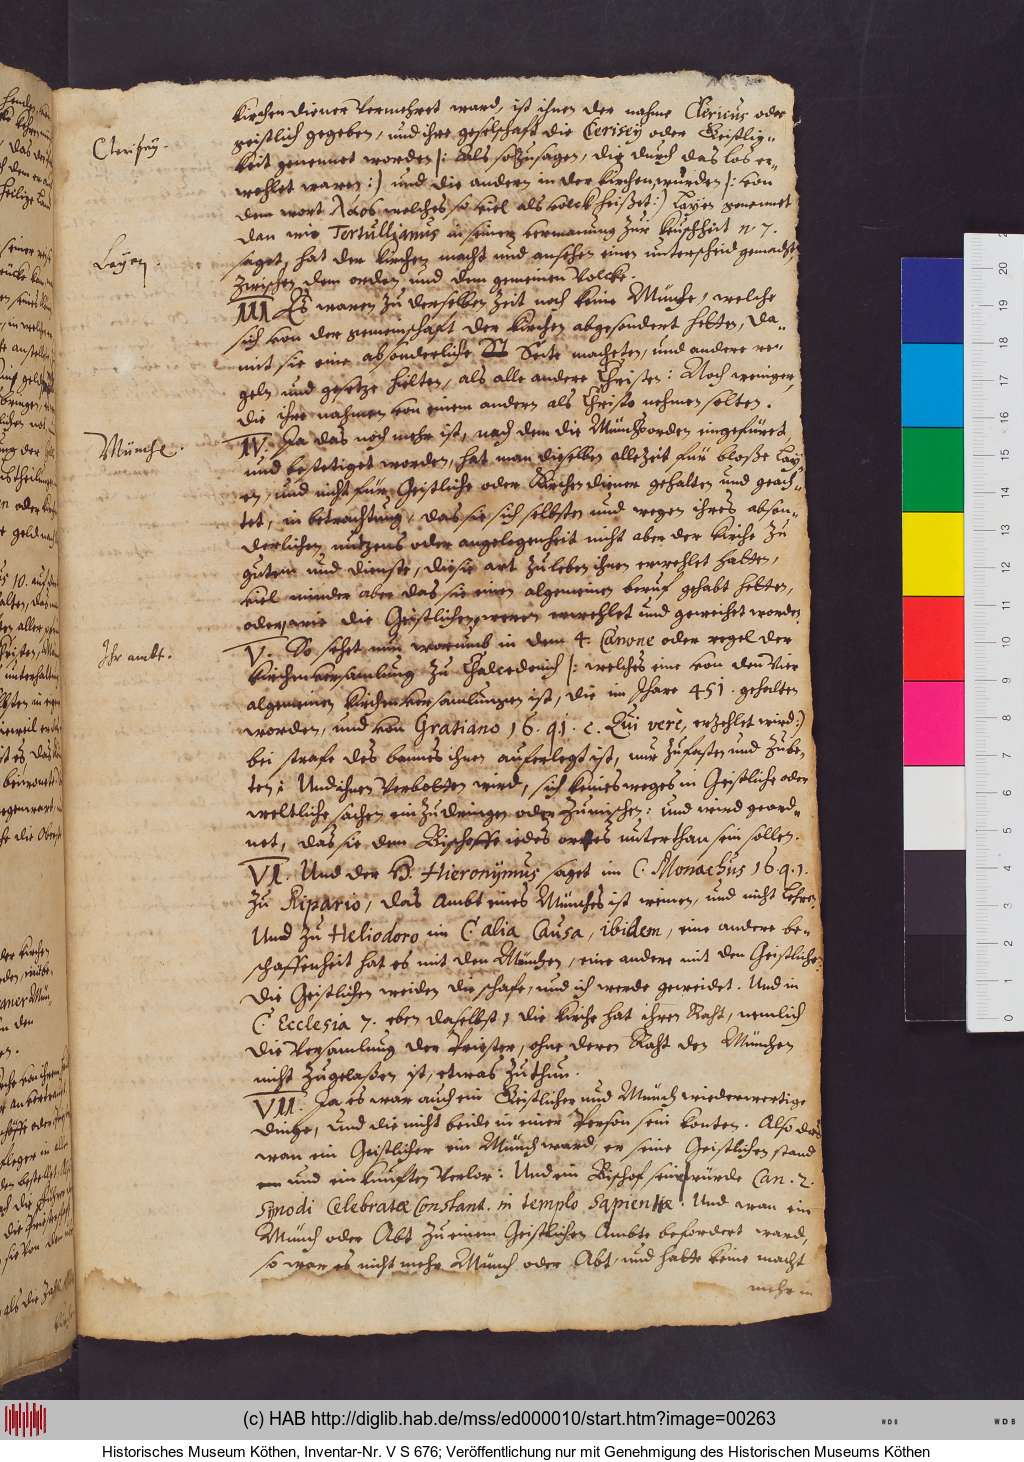 kirchendiener vermehret ward, ist ihnen der nahme Clericus oder
geistlich gegeben, und ihre geselschaft die Clerisey oder Geistlig-
keit genennet worden /: als so zusagen, die durch das los er-
wehlet waren :/ und die andern in der kirchen, wurden /: von
dem wort λαος welches so viel als volck heißet :/ Layen genennet
dan wie Tertullianus in seiner vermanung zur keuschheit n 7.
saget, hat der kirchen macht und ansehen einen unterscheid gemacht
zwischen dem orden und dem gemeinen Volcke.
III Es waren zu derselben Zeit noch keine Münche, welche
sich von der gemeinschaft der kirchen abgesondert hetten, da-
mit sie eine absonderliche Seite macheten, und andere re-
geln und gesetze hielten, als alle andere Christen: Noch weniger,
die ihre nahmen von einem andern als Christo nehmen solten.
IV. Ja das noch mehr ist, nach dem die Münchsorden eingefüret,
und bestetiget worden, hat man dieselben allezeit für bloße Lay-
en, und nicht für Geistliche oder Kirchendiener gehalten und geach-
tet, in betrachtung, das sie sich selbsten und wegen ihres abson-
derlichen nutzens oder angelegenheit nicht aber der kirche zu
gutem und dienste, diese art zuleben ihnen erwehlet hatten,
viel minder aber das sie einen algemeinen beruf gehabt hetten,
oder, wie die Geistlichen, weren erwehlet und geweihet worden.
V. So sehet nun worumb in dem 4. Canone oder regel der
kirchenversamlung zu Chalcedonich /: welches eine von den Vier
algemeinen kirchenversamlungen ist, die im Jhare 451. gehalten
worden, und von Gratiano 16. q1. c. Qui vere, erzehlet wird :/
bei strafe des bannes ihnen auferlegt ist, nur zufasten und zube-
ten; Und ihnen verbotten wird, sich keinesweges in Geistliche oder
weltliche sachen einzudringen oder zumischen: und wird geord-
net, das sie dem Bischoffe iedes ortes unterthan sein sollen.
VI. Und der H. Hieronymus saget im C. Monachus 16. q. 1.
zu Ripario, das Ambt eines Münches ist weinen, und nicht Lehren.
Und zu Heliodoro im C. alia Causa, ibidem, eine andere be-
schaffenheit hat es mit den München, eine andere mit den Geistlichen
die Geistlichen weiden die schafe, und ich werde geweidet. Und in
C. Ecclesia 7. eben daselbst, die kirche hat ihren Raht, nemlich
die Versamlung der Priester, ohne deren Raht den München
nicht zugelaßen ist, etwas zuthun.
VII. Ja es war auch ein Geistlicher und Münch wiederwertige
dinge, und die nicht beide in einer Person sein konten. Also das
wan ein Geistlicher ein Münch ward, er seine Geistlichen stand
und einkunften verlor: Und ein Bischof seine würde Can. 2.
Synodi Celebratæ Constant. in templo Sapientiæ. Und wan ein
Münch oder Abt zu einem Geistlichen Ambte befordert ward,
so war es nicht mehr Münch oder Abt, und hatte keine macht
mehr in
Clerisey.
Layen.
Münche.
Ihr ambt.
(c) HAB http://diglib.hab.de/mss/ed000010/start.htm?image=00263
Historisches Museum Köthen, Inventar-Nr. V S 676; Veröffentlichung nur mit Genehmigung des Historischen Museums Köthen